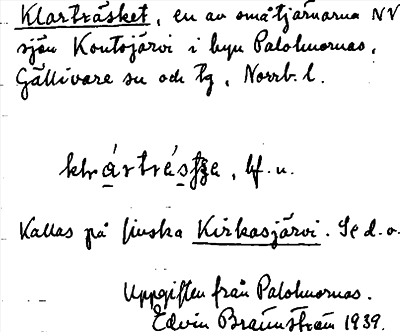 Klarträsket, en av småtjärnarna NV
sjön Kontojärvi i byn Palohuornas,
Gällivare sn och tg, Norrb. l.
bf. u.
Kallas på finska Kirkasjärvi. Se d. o.
Uppgiften från Palohuornas.
Edvin Brännström 1939.